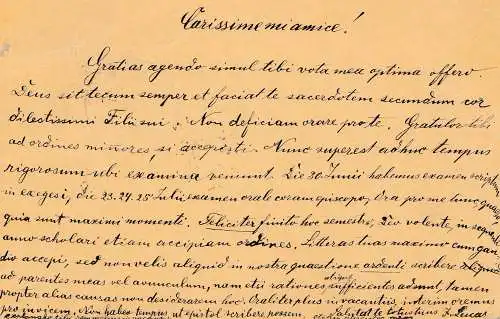 Carissime mi amice!
Gratias agendo simul tibi vota mea optima offero.
Deus sit tecum semper et faciat te sacerdotem secundum cor
dilectissimi Filii sui. Non deficiam orare pro te. Gratulor tibi
ad ordines minores, si accepisti. Nunc superest adhuc tempus
rigorosum ubi examina veniunt. Die 30 Junii habemus examen script.
in exegesi, die 23.24.25 Julii examen orale coram episcopo. Ora pro me tunc quaeso
quia sunt maximi momenti. Feliciter finito hoc semestre, Deo volente, in sequenti
anno scholari etiam accipiam ordines. Litteras tuas maximo cum gau
dio accepi, sed non velis aliquid in nostra quaestione ardenti scribere
ad parentes meas vel avunculum, nam etsi rationes sufficientes adsunt, tamen
propter alias causas non desiderarem hoc. Oraliter plus in vacantiis, interim oremus
pro invicem. Non habeo tempus, ut epistol. scribere possem. totus tuus J. Lucas